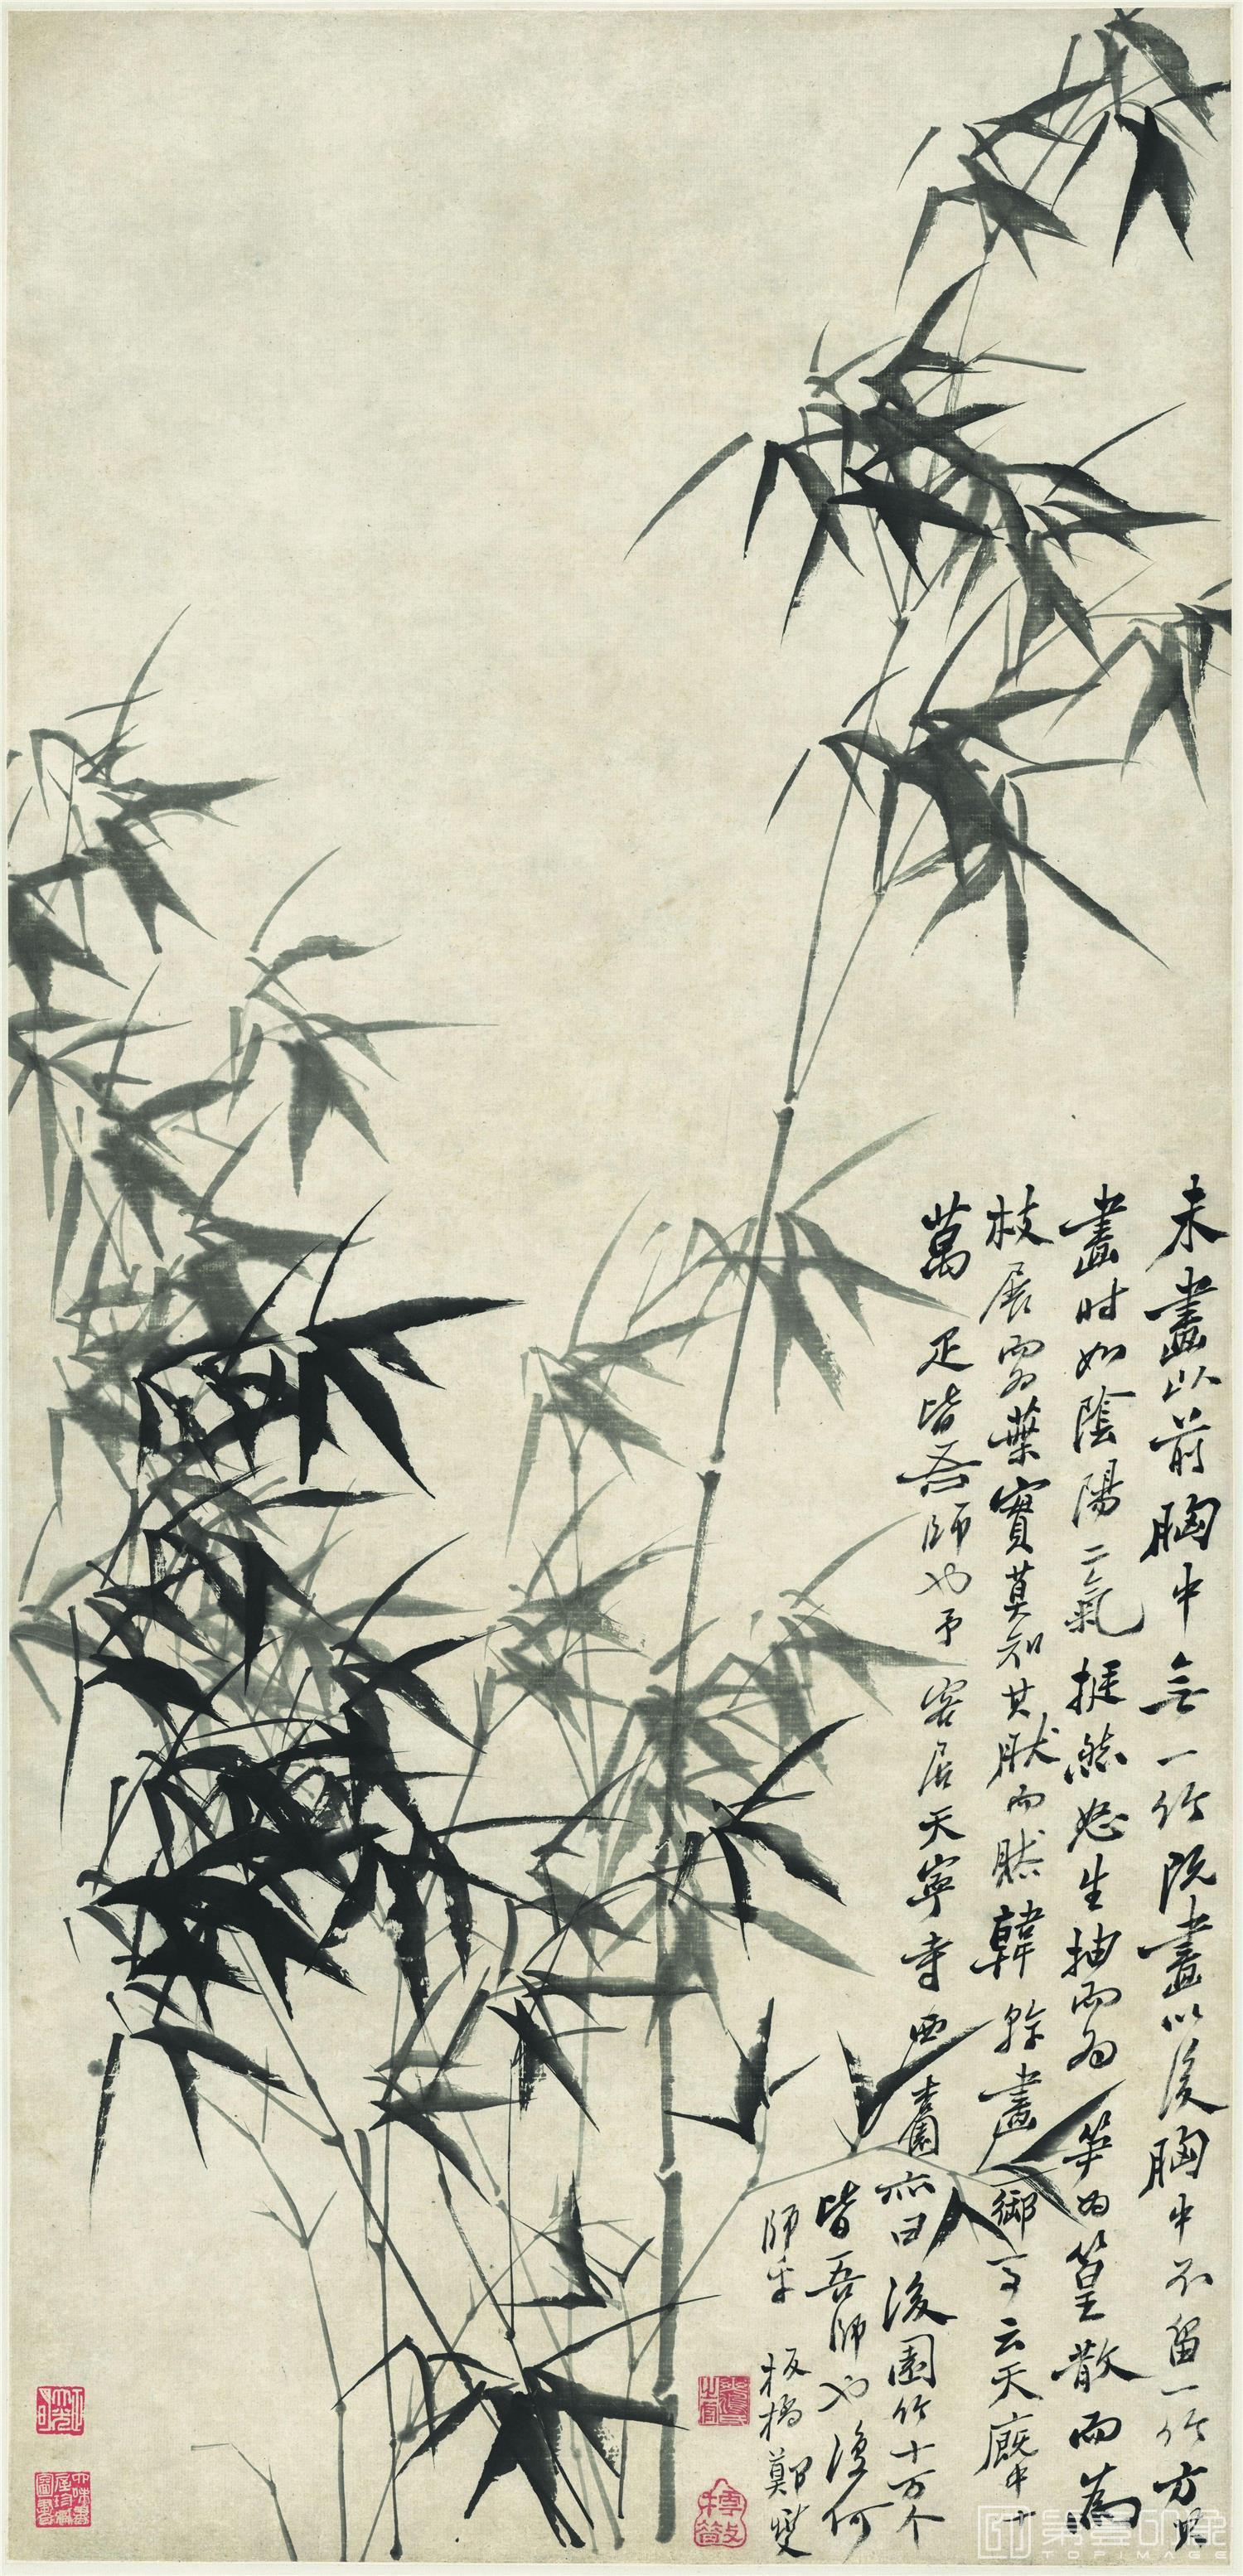 未畫以前胸中無一竹既畫以後胸中不留一竹方其
畫時如陰陽二氣挺然怒生抽而為筍為篁散而為
枝展而為葉實莫知其然而然韓幹畫御馬云天廄中十
萬疋皆吾師也予客居天寧寺西杏園
亦曰後園竹十万个
皆吾師也復何
師乎 板橋鄭燮
樗散
第壹印象
TOPIMAGE